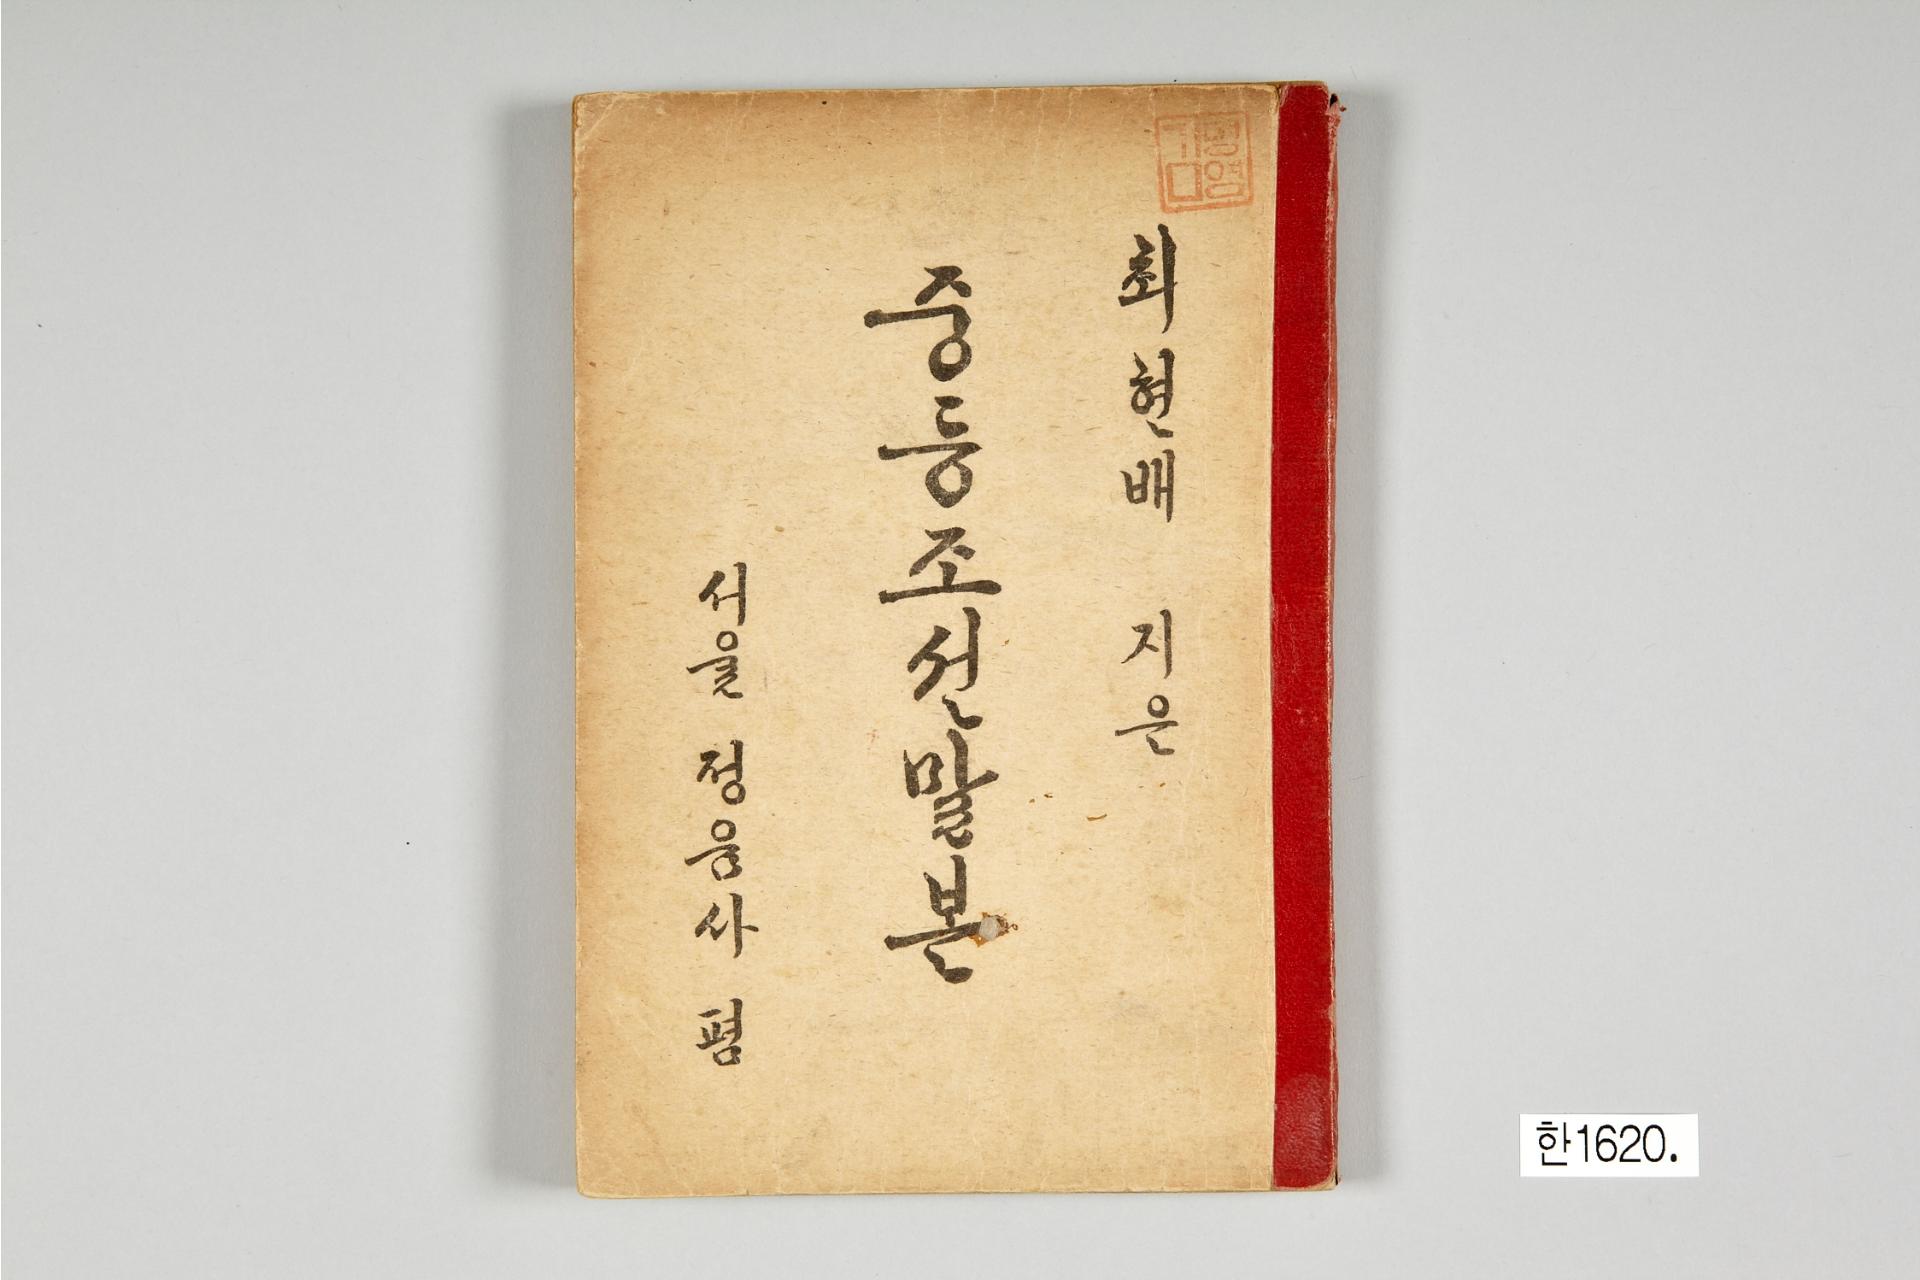 최현배 지은
중등조선말본
서울 정음사 펌
한1620.